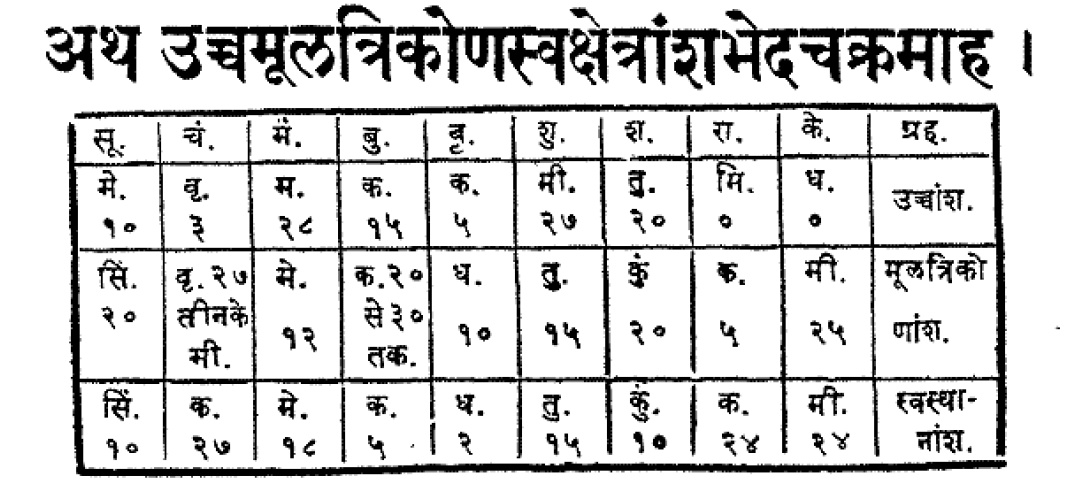 अथ उच्चमूलत्रिकोणस्वक्षेत्रांशभेदचक्रमाह ।
सू. चं. मं. बु. बृ. शु. श. रा. के. ग्रह.
मे. वृ. म. क. क. मी. तु. मि. ध. उच्चांश.
१० ३ २८ १५ ५ २७ २० ० ०
सिं. वृ.२७ मे. क.२० ध. तु. कुं क. मी. मूलत्रिको
२० तीनके १२ से३० १० १५ २० ५ २५ णांश.
मी. तक.
सिं. क. मे. क. ध. तु. कुं. क. मी. स्वस्था-
१० २७ १८ ५ २ १५ १० २४ २४ नांश.